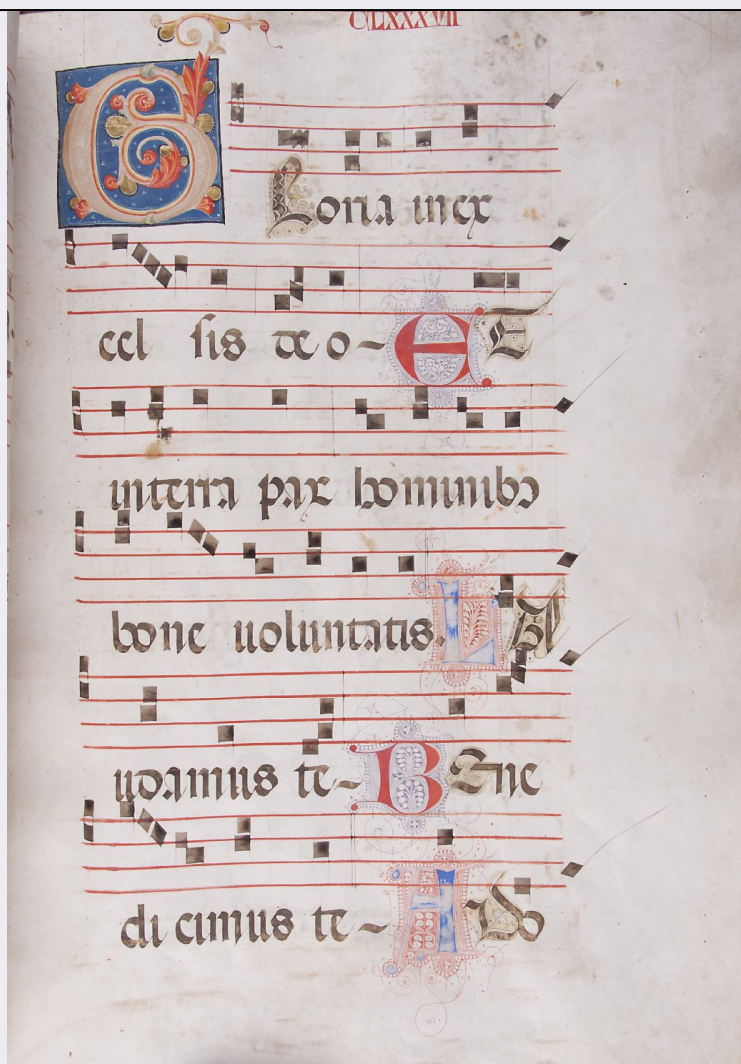 CLXXXVII
GLoria in ex
cel sis deo ET
in terra pax hominibꝯ
bone uoluntatis. LAu
udamus te BEne
di cimus te ADo